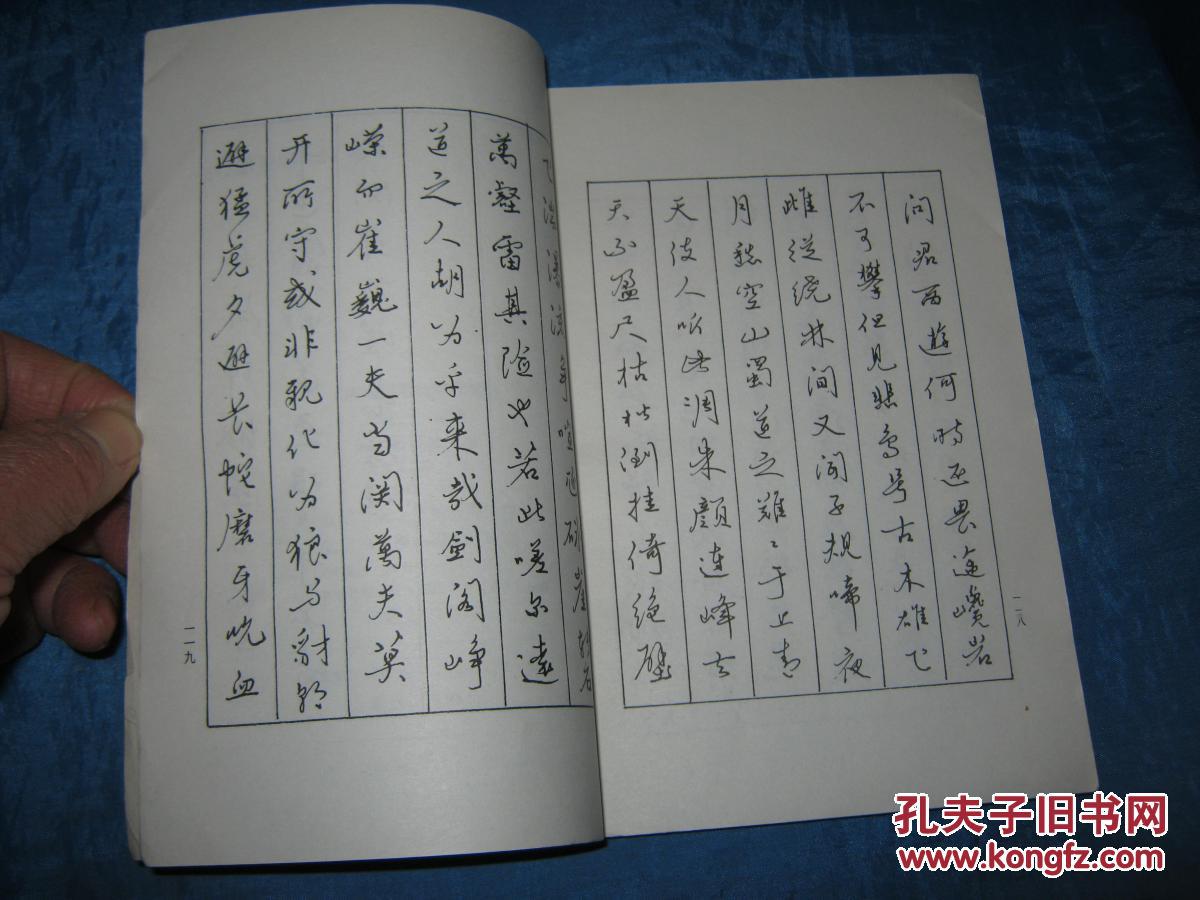 问君西遊何时还畏途巉岩
不可攀但见悲鸟号古木雄飞
雌従绕林间又闻子规啼夜
月愁空山蜀道之难〻于上青
天使人听此凋朱颜连峰去
天不盈尺枯松倒挂倚绝壁
一一八
飞湍瀑流争喧豗砯崖转石
萬壑雷其险也若此嗟尔遠
道之人胡为乎来哉剑阁峥
嵘而崔巍一夫当関萬夫莫
开所守或非親化为狼与豺朝
避猛虎夕避长蛇磨牙吮血
一一九
孔夫子旧书网
www.kongfz.com